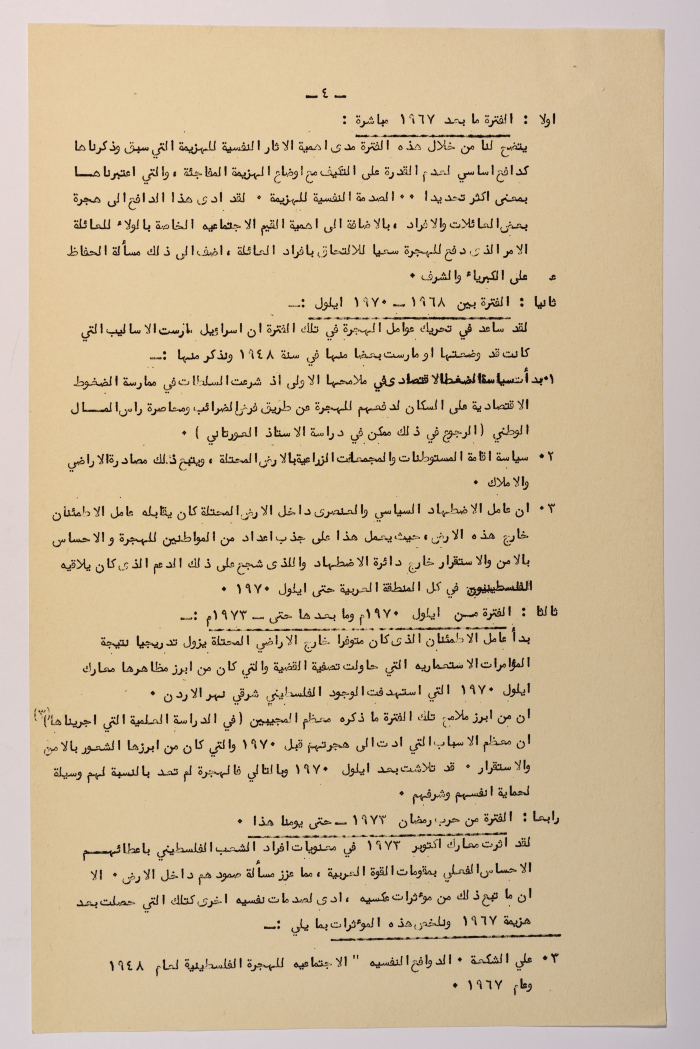 ـ ٤ ـ
اولا : الفترة ما بعد ١٩٦٧ مباشرة :
يتضح لنا من خلال هذه الفترة مدى اهمية الاثار النفسية للهزيمة التي سبق وذكرناها
كدافع اساسي لعدم القدرة على التكيف مع اوضاع الهزيمة المفاجئة ، والتي اعتبرناهـــا
بمعنى اكثر تحديدا ٠٠ الصدمة النفسية للهزيمة ٠ لقد ادى هذا الدافع الى هجرة
بعض العائلات والافراد ، بالاضافة الى اهمية القيم الاجتماعيه الخاصة بالولاء للعائلة
الامر الذى دفع للهجرة سعيا للالتحاق بافراد العائلة ، اضف الى ذلك مسألة الحفاظ
على الكبرياء والشرف ٠
ثانيا : الفترة بين ١٩٦٨ ــ ١٩٧٠ ايلول :ــ
لقد ساعد في تحريك عوامل الهجرة في تلك الفترة ان اسرائيل مارست الاساليب التي
كانت قد وضعتها او مارست بعضا منها في سنة ١٩٤٨ ونذكر منها :ــ
١٠ بدأت سياسة الضغط الاقتصادى في ملامحها الاولى اذ شرعت السلطات في ممارسة الضغوط
الاقتصادية على السكان لدفعهم للهجرة عن طريق فرض الضرائب ومحاصرة راس المــال
الوطني ( الرجوع في ذلك ممكن في دراسة الاستاذ العورتاني ) ٠
٢٠ سياسة اقامة المستوطنات والمجمعات الزراعية بالارض المحتلة ، ويتبع ذلك مصادرة الاراضي
والاملاك ٠
٣٠ ان عامل الاضطهاد السياسي والعنصرى داخل الارض المحتلة كان يقابله عامل الاطمئنان
خارج هذه الارض ، حيث يعمل هذا على جذب اعداد من المواطنين للهجرة و الاحساس
بالامن والاستقرار خارج دائرة الاضطهاد والذى شجع على ذلك الدعم الذى كان يلاقيه
الفلسطينيون في كل المنطقة العربية حتى ايلول ١٩٧٠ ٠
ثالثا : الفترة مــن ايلول ١٩٧٠م وما بعدها حتى ــ ١٩٧٣م :ــ
بدأ عامل الاطمئنان الذى كان متوفرا خارج الاراضي المحتلة يزول تدريجيا نتيجة
المؤامرات الاستعماريه التي حاولت تصفية القضية والتي كان من ابرز مظاهرها معارك
ايلول ١٩٧٠ التي استهدفت الوجود الفلسطيني شرقي نهر الاردن ٠
ان من ابرز ملامح تلك الفترة ما ذكره معظم المجيبين ( في الدراسة العلمية التي اجريناها ) (٣)
ان معظم الاسباب التي ادت الى هجرتهم قبل ١٩٧٠ والتي كان من ابرزها الشعور بالامن
والاستقرار ٠ قد تلاشت بعد ايلول ١٩٧٠ وبالتالي فالهجرة لم تعد بالنسبة لهم وسيلة
لحماية انفسهم وشرفهم ٠
رابعا : الفترة من حرب رمضان ١٩٧٣ ــ حتى يومنا هذا ٠
لقد اثرت معارك اكتوبر ١٩٧٣ في معنويات افراد الشعب الفلسطيني باعطائهــم
الاحساس الفعلي بمقومات القوة العربية ، مما عزز مسألة صمودهم داخل الارض ٠ الا
ان ما تبع ذلك من مؤثرات عكسيه ، ادى لصدمات نفسيه اخرى كتلك التي حصلت بعد
هزيمة ١٩٦٧ ونلخص هذه المؤثرات بما يلي :ــ
٣٠ علي الشكعة ٠ الدوافع النفسيه " الاجتماعيه للهجرة الفلسطينية لعام ١٩٤٨
وعام ١٩٦٧ ٠